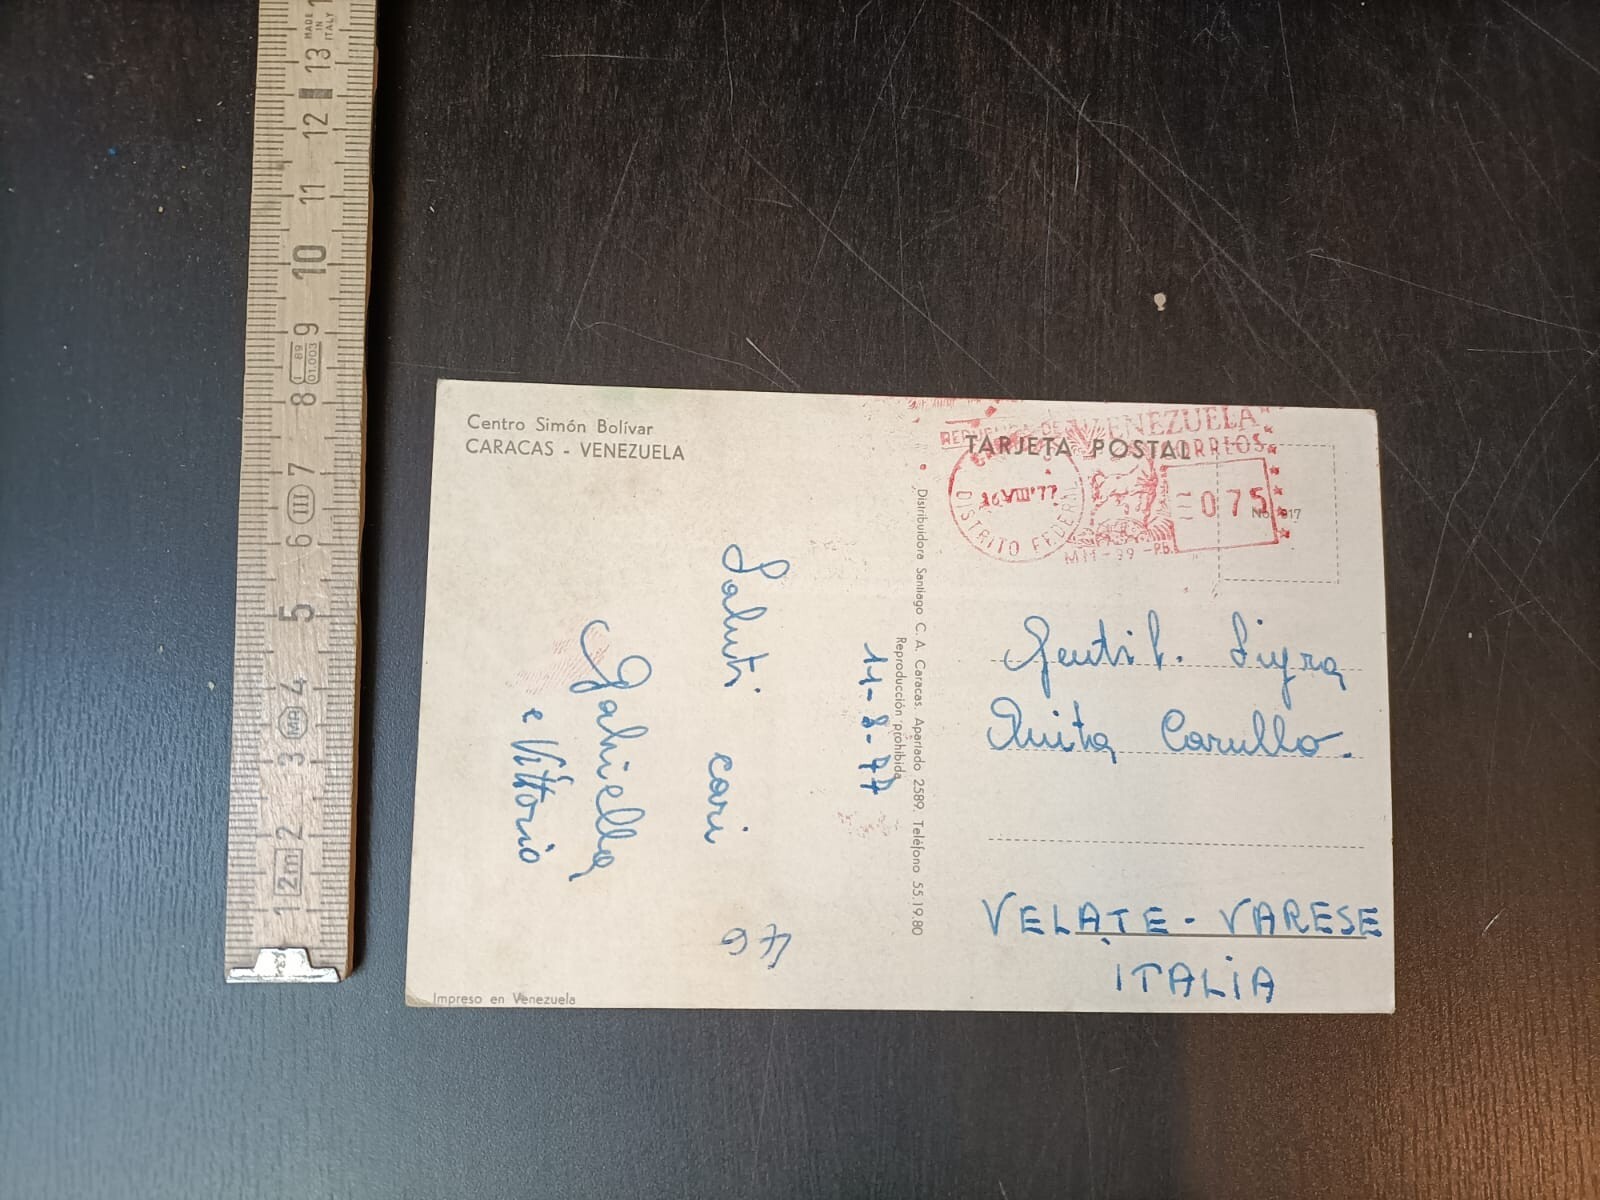 Centro Simón Bolívar
CARACAS - VENEZUELA
11-8-77
Saluti cari
Gabriella
e Vittorio
46
Impreso en Venezuela
Distribuidora Santiago C. A. Caracas. Apartado 2589. Teléfono 55.19.80
Reproducción prohibida
REPUBLICA DE VENEZUELA
TARJETA POSTAL
CORREOS
DISTRITO FEDERAL
VIII 77
075
No. 817
Gentil. Sig.ra
Anita Carullo.
VELATE - VARESE
ITALIA
MADE IN ITALY
13
12
11
10
9
I 89
01.003
8
7
III
6
5
4
3
2
2m
1